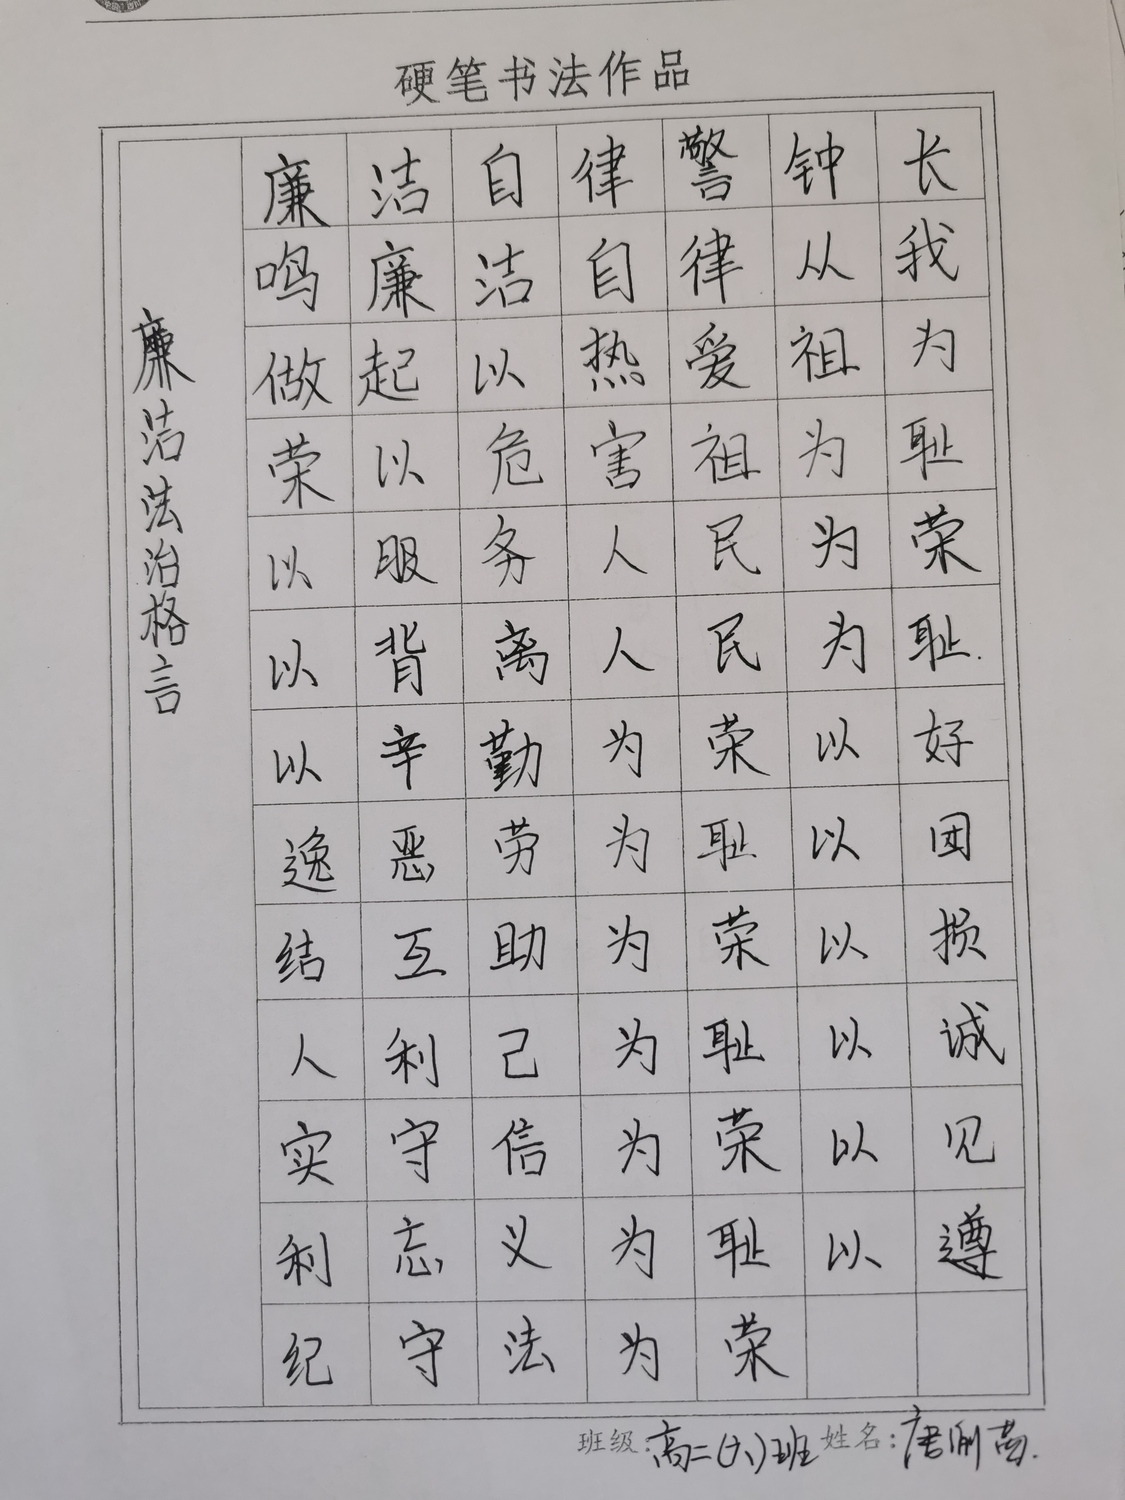 硬笔书法作品
廉洁法治格言
廉洁自律警钟长
鸣廉洁自律从我
做起以热爱祖为
荣以危害祖为耻
以服务人民为荣
以背离人民为耻.
以辛勤为荣以好
逸恶劳为耻以团
结互助为荣以损
人利己为耻以诚
实守信为荣以见
利忘义为耻以遵
纪守法为荣
班级:高二(六)班 姓名:唐